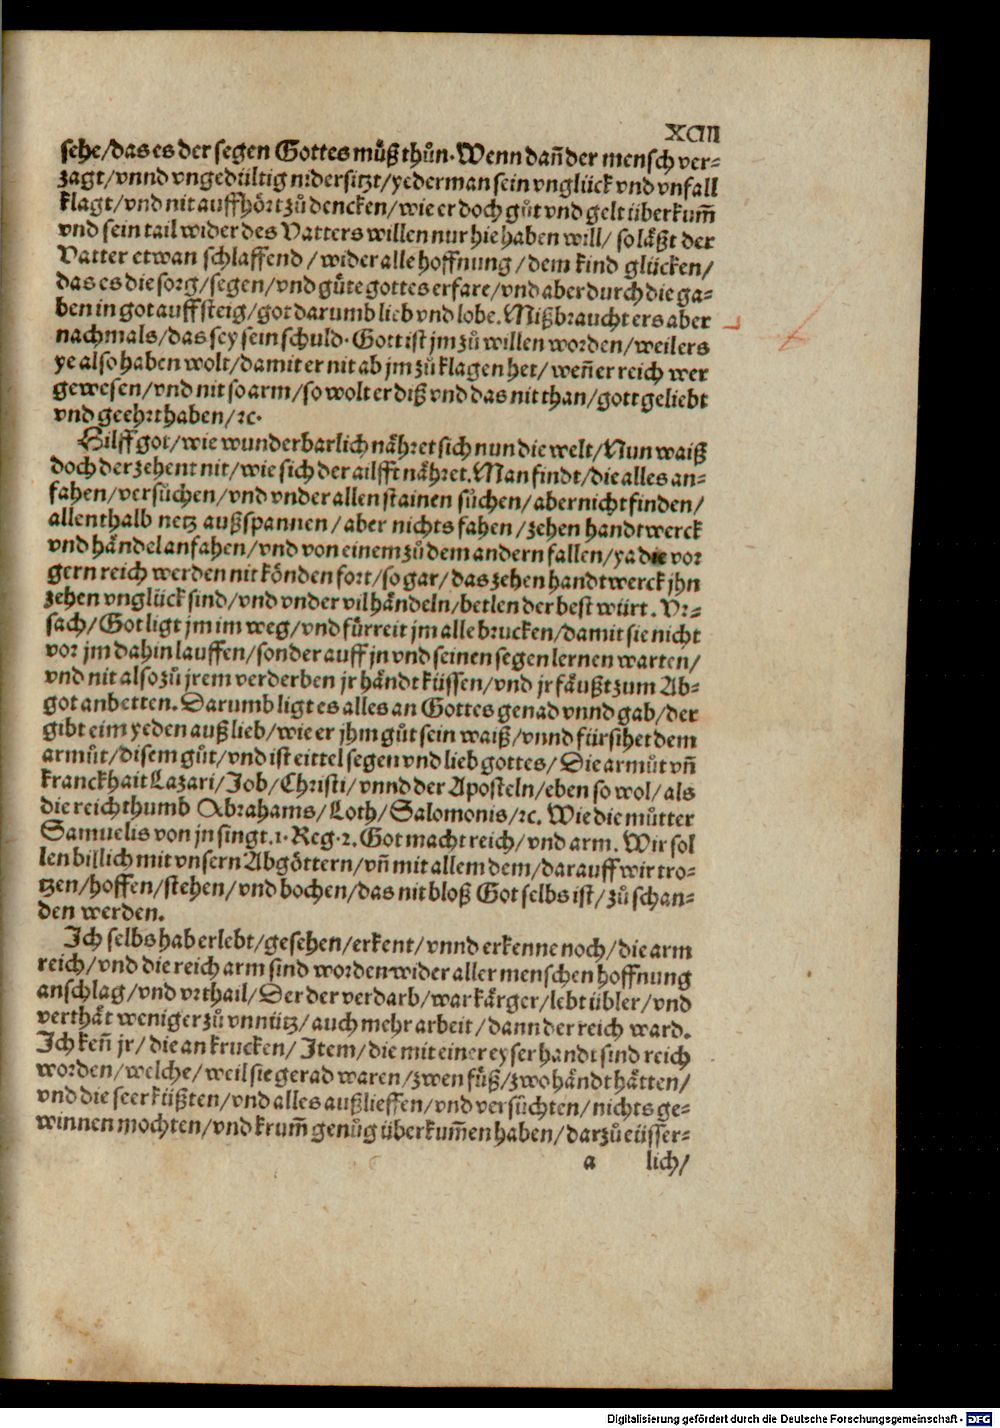 XCIII
sehe/das es der segen Gottes můß thůn. Wenn dañ der mensch ver⸗
zagt/vnnd vngedültig nidersitzt/yederman sein vnglück vnd vnfall
klagt/vnd nit auffhört zů dencken/wie er doch gůt vnd gelt überkum̃
vnd sein tail wider des Vatters willen nur hie haben will/ so läßt der
Vatter etwan schlaffend/wider alle hoffnung/dem kind glücken/
das es die sorg/segen/vnd güte gottes erfare/vnd aber durch die ga⸗
ben in got auffsteig/got darumb lieb vnd lobe. Mißbraucht ers aber
nachmals/das sey sein schuld. Gott ist jm zů willen worden/weil ers
ye also haben wolt/damit er nit ab jm zů klagen het/weñ er reich wer
gewesen/vnd nit so arm/so wolt er diß vnd das nit than/gott geliebt
vnd geehrt haben/ꝛc.
Hilff got/wie wunderbarlich nähret sich nun die welt/Nun waiß
doch der zehent nit/wie sich der ailfft nähret. Man findt/die alles an⸗
fahen/versůchen/vnd vnder allen stainen sůchen/aber nicht finden/
allenthalb netz außspannen/aber nichts fahen/zehen handtwerck
vnd händel anfahen/vnd von einem zů dem andern fallen/ya die vor
gern reich werden nit könden fort/so gar/das zehen handtwerck jhn
zehen vnglück sind/vnd vnder vil händeln/betlen der best würt. Vr⸗
sach/Got ligt jm im weg/vnd fürreit jm alle brucken/damit sie nicht
vor jm dahin lauffen/sonder auff jn vnd seinen segen lernen warten/
vnd nit also zů jrem verderben jr händt küssen/vnd jr fäußt zum Ab⸗
got anbetten. Darumb ligt es alles an Gottes genad vnnd gab/der
gibt eim yeden auß lieb/wie er jhm gůt sein waiß/vnnd fürsihet dem
armůt/disem gůt/vnd ist eittel segen vnd lieb gottes/Die armůt vñ
kranckhait Lazari/Job/Christi/vnnd der Aposteln/eben so wol/als
die reichthumb Abrahams/Loth/Salomonis/ꝛc. Wie die můtter
Samuelis von jn singt.1.Reg.2. Got macht reich/vnd arm. Wir sol
len billich mit vnsern Abgöttern/vñ mit allem dem/darauff wir tro⸗
tzen/hoffen/stehen/vnd bochen/das nit bloß Got selbs ist/zů schan⸗
den werden.
Ich selbs hab erlebt/gesehen/erkent/vnnd erkenne noch/die arm
reich/vnd die reich arm sind worden wider aller menschen hoffnung
anschlag/vnd vrthail/Der der verdarb/war kärger/lebt übler/vnd
verthät weniger zů vnnütz/auch mehr arbeit/dann der reich ward.
Ich keñ jr/die an krucken/Item/die mit einer eyser handt sind reich
worden/welche/weil sie gerad waren/zwen füß/zwo händt hätten/
vnd die seer küßten/vnd alles außlieffen/vnd versůchten/nichts ge⸗
winnen mochten/vnd krum̃ genůg überkum̃en haben/darzů eüsser⸗
a lich/
Digitalisierung gefördert durch die Deutsche Forschungsgemeinschaft - DFG